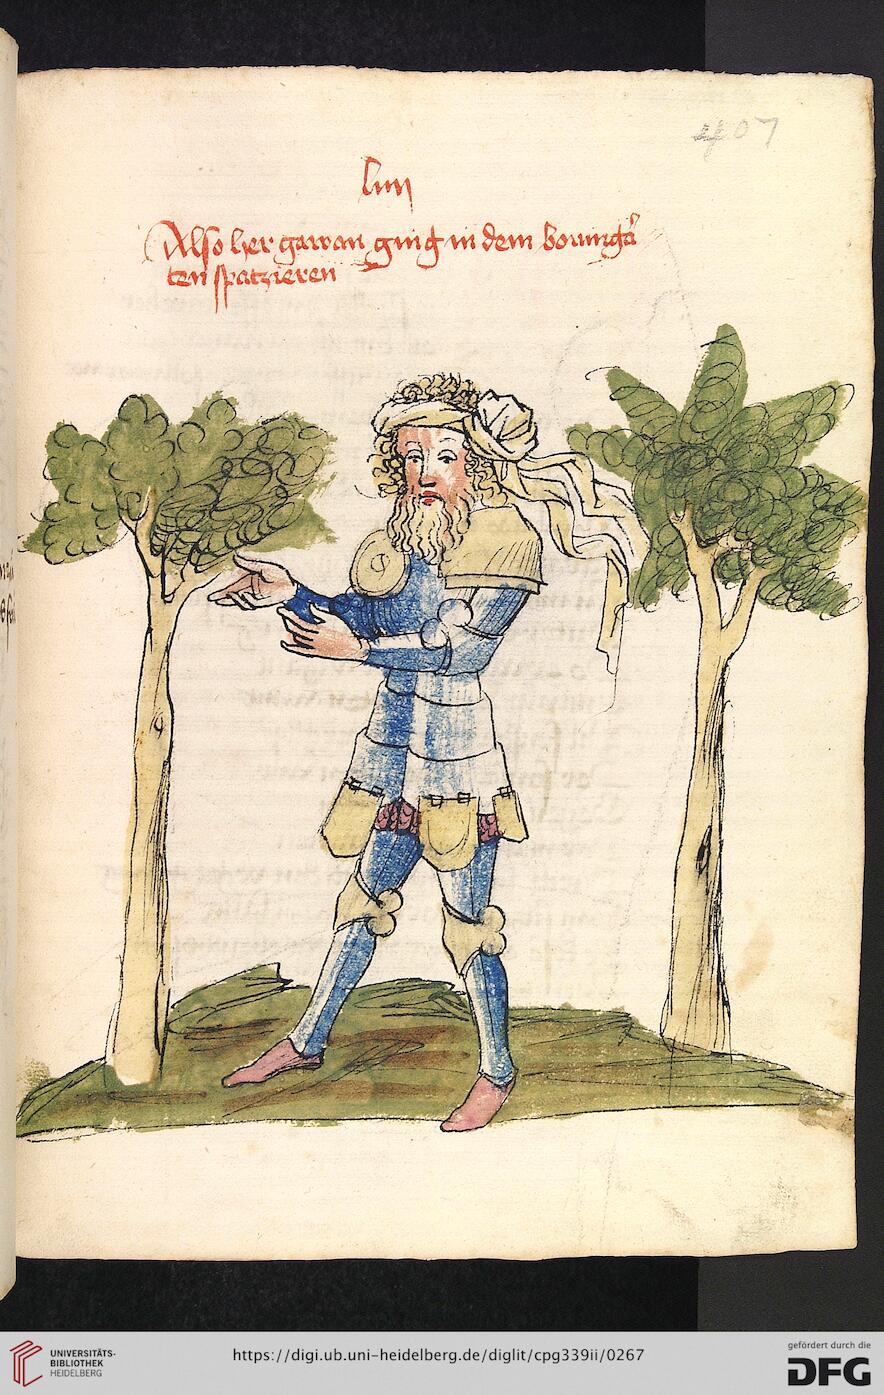 407
liiii
Also her gawan ging in dem boumgar
ten spatzieren
UNIVERSITÄTS-
BIBLIOTHEK
HEIDELBERG
https://digi.ub.uni-heidelberg.de/diglit/cpg339ii/0267
gefördert durch die
DFG